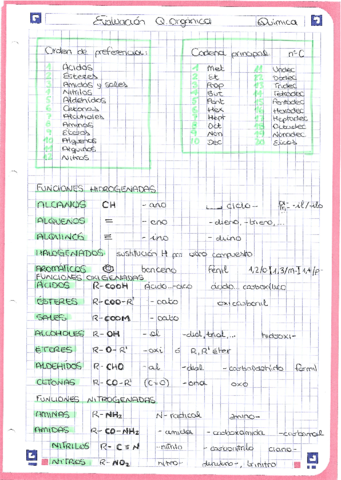 Evaluación Q. Orgánica Química
Orden de preferencia:
1 Ácidos
2 Ésteres
3 Amidas y sales
4 Nitrilos
5 Aldehidos
6 Cetonas
7 Alcoholes
8 Aminas
9 Éteres
10 Alquenos
11 Alquinos
12 Nitros
Cadena principal nºC
1 Met 11 Undec
2 Et 12 Dodec
3 Prop 13 Tridec
4 But 14 Tetradec
5 Pent 15 Pentadec
6 Hex 16 Hexadec
7 Hept 17 Heptadec
8 Oct 18 Octadec
9 Non 19 Nonadec
10 Dec 20 Eicos
FUNCIONES HIDROGENADAS
ALCANOS CH -ano ciclo- -il/-ilo
ALQUENOS = -eno -dieno, -trieno, ...
ALQUINOS ≡ -ino -diino
HALOGENADOS sustitución H por otro compuesto
AROMÁTICOS benceno fenil
FUNCIONES OXIGENADAS
ÁCIDOS R-COOH Ácido -oico ácido carboxílico
ÉSTERES R-COO-R' -oato oxicarbonil
SALES R-COOM -oato
ALCOHOLES R-OH -ol -diol, triol, ... hidroxi-
ÉTERES R-O-R' -oxi ó R, R' éter
ALDEHIDOS R-CHO -al -dial -carbaldehído formil
CETONAS R-CO-R' (C=O) -ona oxo
FUNCIONES NITROGENADAS
AMINAS R-NH₂ N-radical amino-
AMIDAS R-CO-NH₂ -amida -carboxamida -carbamoil
NITRILOS R-C≡N -nitrilo -carbonitrilo ciano-
NITROS R-NO₂ Nitro- dinitro-, trinitro